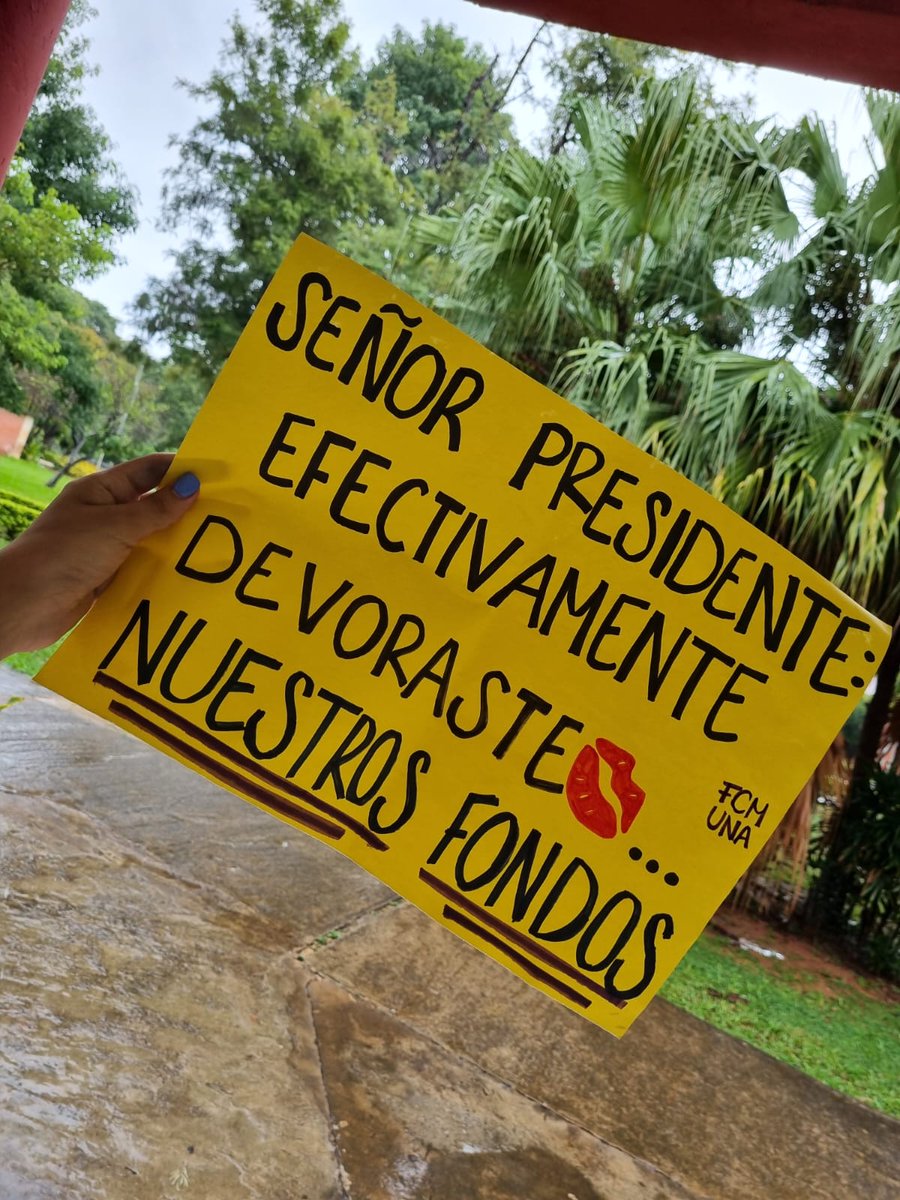 SEÑOR PRESIDENTE:
EFECTIVAMENTE
DEVORASTE...
NUESTROS FONDOS
FCM
UNA